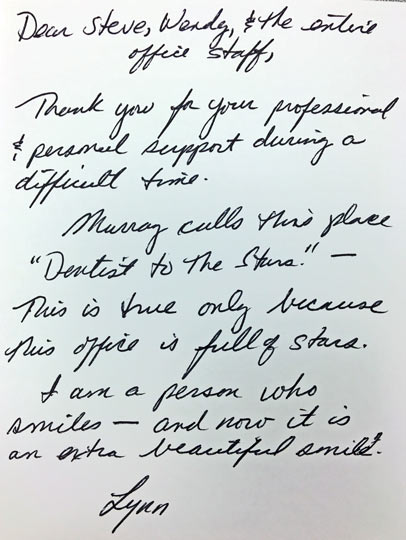 Dear Steve, Wendy, & the entire
office staff,
Thank you for your professional
& personal support during a
difficult time.
Murray calls this place
"Dentist to the Stars." —
This is true only because
this office is full of stars.
I am a person who
smiles — and now it is
an extra beautiful smile.
Lynn